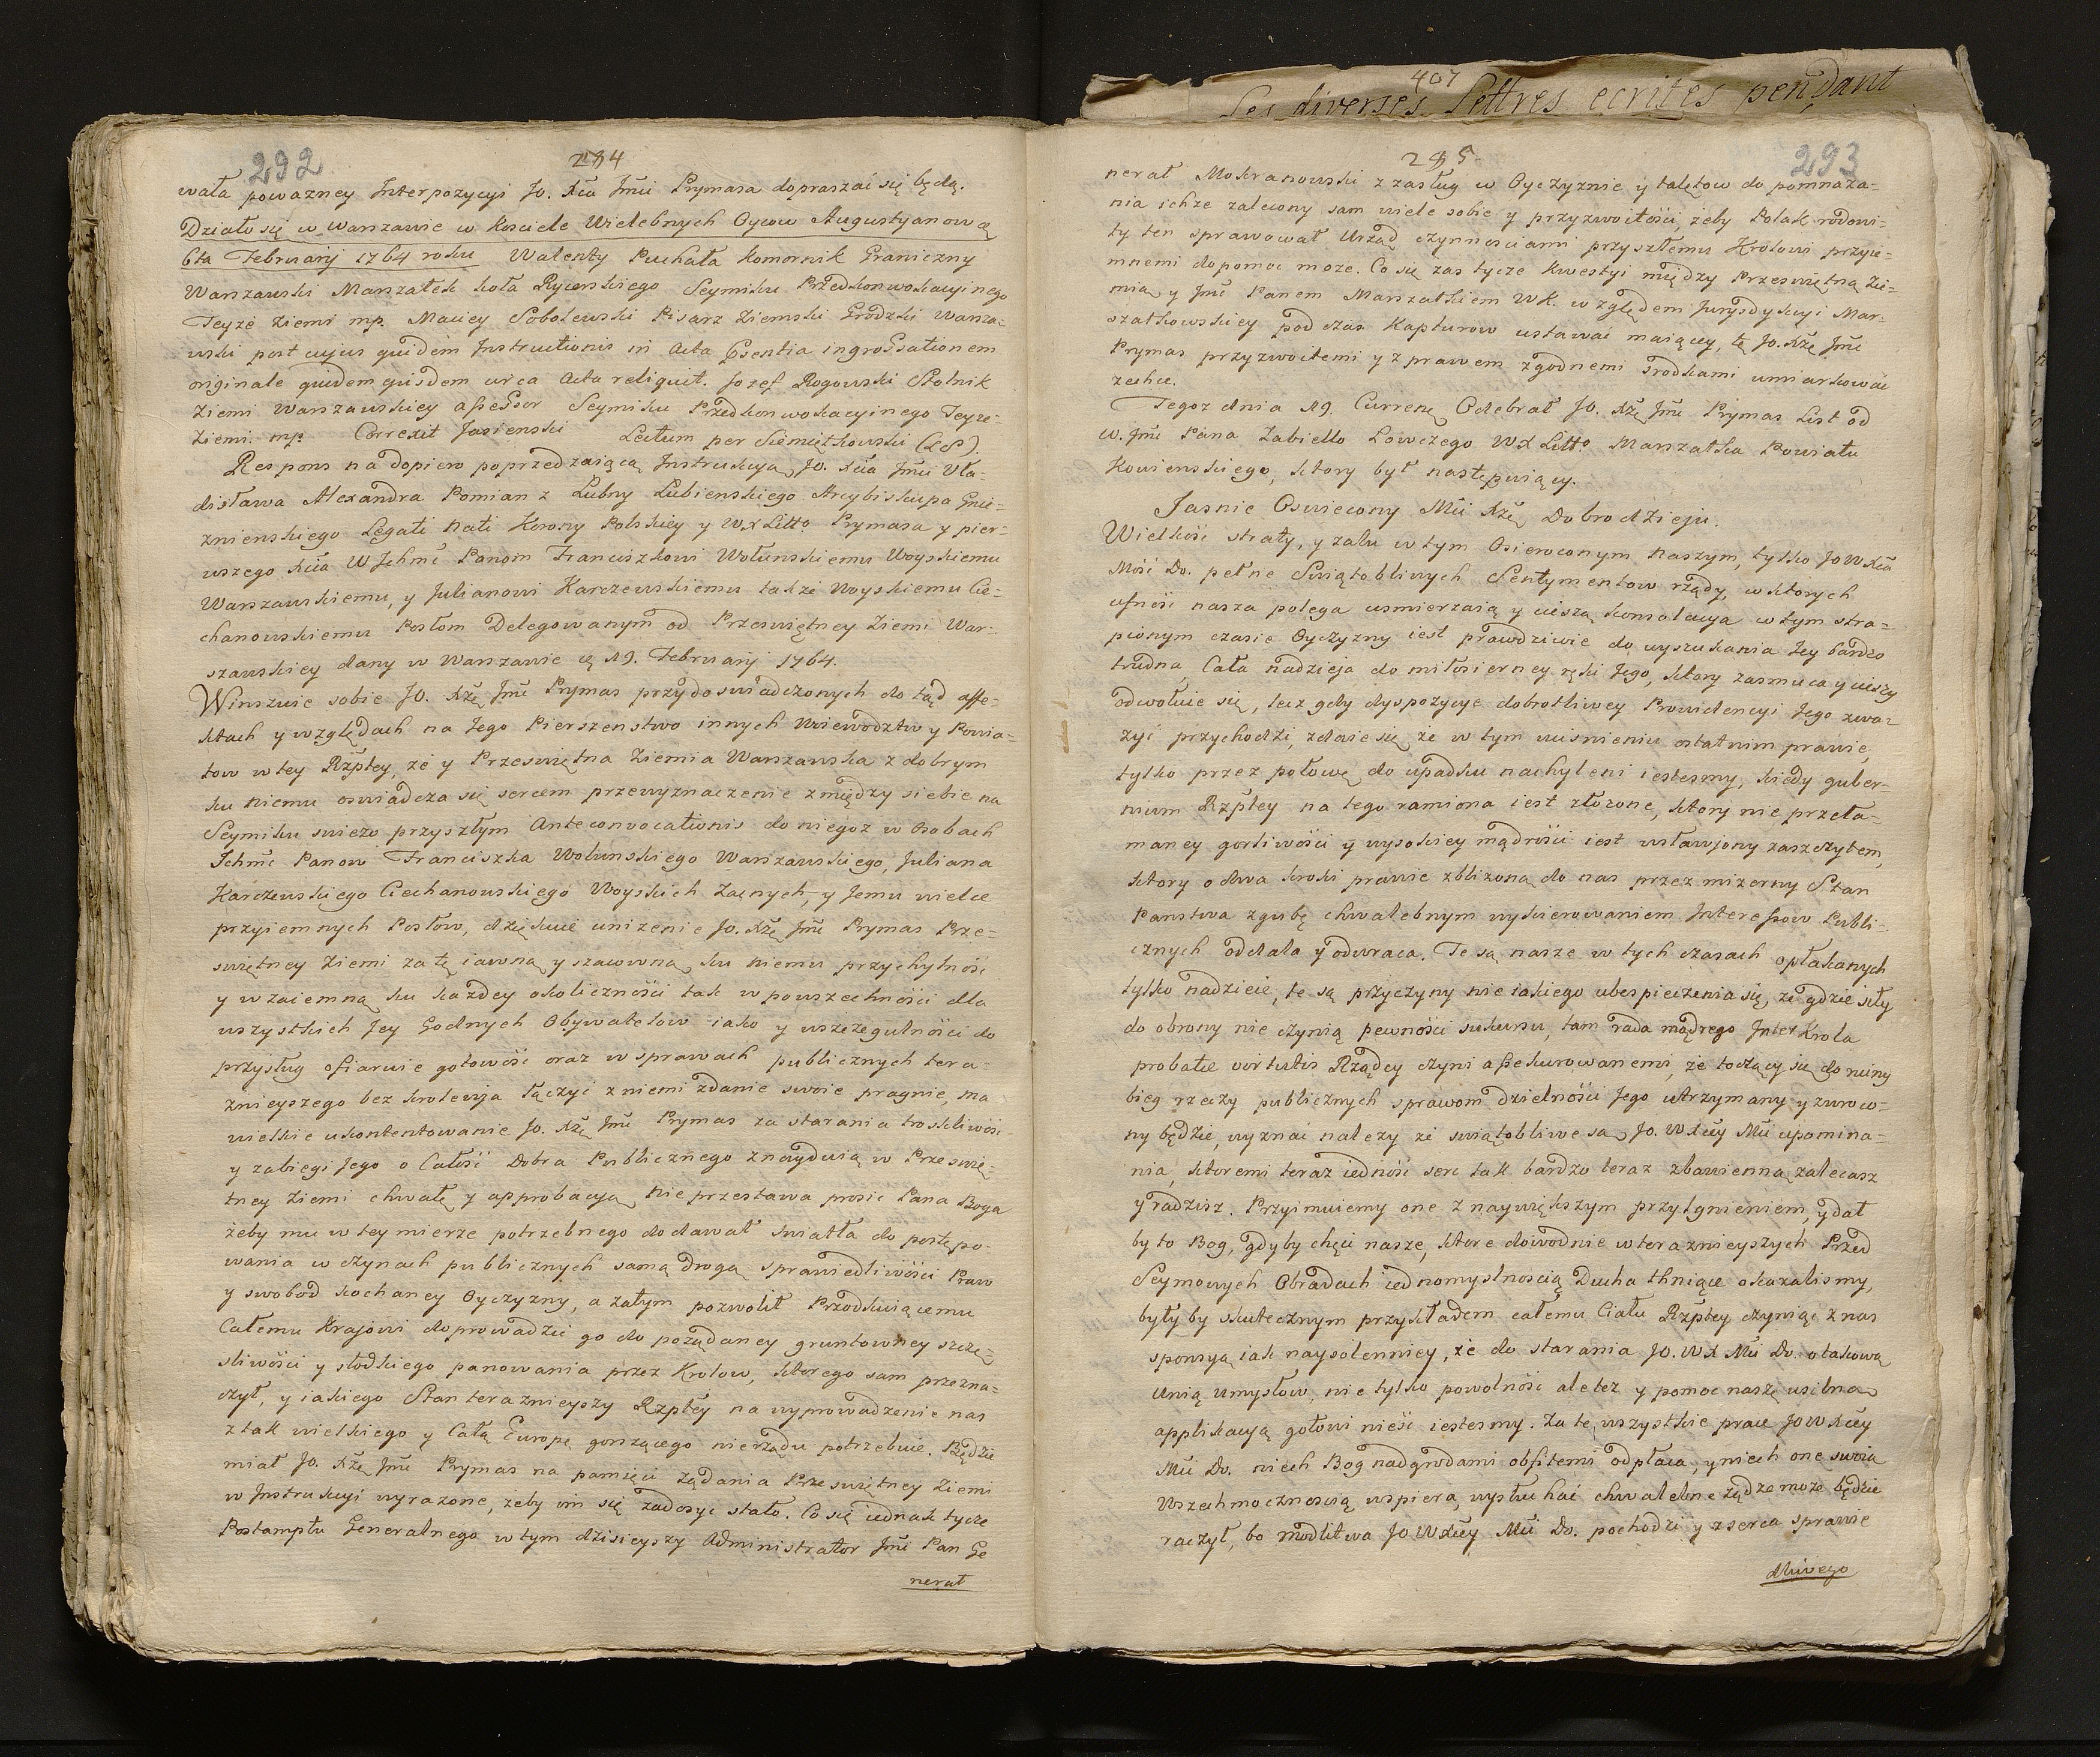 292
284
wała powazney Interpozycyi Jo. Xcia Jmci Prymasa dopraszać się będą.
Działo się w Warszawie w Kosciele Wielebnych Oycow Augustyanow
6ta Februarij 1764 roku Walenty Puchała Komornik Graniczny
Warszawski Marszałek koła Rycerskiego Seymiku Przedkonwokacyinego
Teyże Ziemi mp. Maciey Sobolewski Pisarz Ziemski Grodzki Warsza-
wski post cujus quidem Instructionis in Acta Psentia ingrossationem
originale quidem ejusdem circa Acta reliquit. Jozef Rogowski Stolnik
Ziemi Warszawskiey assessor Seymiku Przedkonwokacyinego Teyze-
Ziemi mp. Correxit Jasienski Lectum per Siemiętkowski (LS).
Respons na dopiero poprzedzaiącą Instrukcyą Jo. Xcia Jmci Wła-
disława Alexandra Pomian z Lubny Lubienskiego Arcybiskupa Gnie-
znienskiego Legati Nati Korony Polskiey y WX Litto Prymasa y pier-
wszego Xcia WJchmć Panom Franciszkowi Wołunskiemu Woyskiemu
Warszawskiemu, y Julianowi Karczewskiemu także Woyskiemu Cie-
chanowskiemu Posłom Delegowanym od Przeswiętney Ziemi War-
szawskiey dany w Warszawie 19. Februarij 1764.
Winszuie sobie JO. Xżę Jmć Prymas przy doswiadczonych do tąd affe-
ktach y względach na Jego Pierszenstwo innych Woiewodztw y Powia-
tow w tey Rzptey, że y Przeswiętna Ziemia Warszawska z dobrym
ku niemu oswiadcza się sercem przewyznaczenie zmiędzy siebie na
Seymiku swiezo przyszłym Anteconvocationis do niegoz w Osobach
Jchmć Panow Franciszka Wołunskiego Warszawskiego, Juliana
Karczewskiego Ciechanowskiego Woyskich Zacnych, y Jemu wielce
przyiemnych Posłow, dziękuie unizenie Jo. Xżę Jmć Prymas Prze-
swiętney Ziemi za tę iawną y szacowną ku niemu przychylność
y wzaiemną ku kazdey okoliczności tak w powszechności dla
wszystkich Jey Godnych Obywatelow iako y wszczegulności do
przysług ofiaruie gotowość oraz w sprawach publicznych tera-
znieyszego bez krolewia łączyć z niemi zdanie swoie pragnie, ma
wielkie ukontentowanie Jo. Xżę Jmć Prymas za starania troskliwość
y zabiegi Jego o Całość Dobra Publicznego znayduią w Przeswię-
tney Ziemi chwałę y approbacyą, Nie przestawa prosić Pana Boga
żeby mu w tey mierze potrzebnego dodawał swiatła do postępo-
wania w czynach publicznych samą drogą sprawiedliwości Praw
y swobod kochaney Oyczyzny, a zatym pozwolił Przodkuiącemu
Całemu Krajowi doprowadzić go do pożądaney gruntowney szczę-
sliwości y słodkiego panowania przez Krolow, ktorego sam przezna-
czył, y iakiego Stan teraznieyszy Rzptey na wyprowadzenie nas
z tak wielkiego y Całą Europę gorszącego nierządu potrzebuie. Będzie
miał Jo. Xżę Jmć Prymas na pamięci żądania Przeswiętney Ziemi
w Instrukcyi wyrazone, żeby im się zadosyć stało. Co się iednak tycze
Postamptu Generalnego w tym dzisieyszy Administrator Jmć Pan Ge
nerał
407
Les diverses Lettres ecrites pendant
285
293
nerał Mokranowski z zasług w Oyczyznie y talętow do pomnaża-
nia ichże zalecony sam wiele sobie y przyzwoitości, żeby Polak rodowi-
ty ten sprawował Urząd czynnosciami przyszłemu Krolowi przyie-
mnemi dopomoc może. Co się zas tycze Kwestyi między Przeswiętną Zie-
mią y Jmć Panem Marszałkiem WK. względem Jurysdykcyi Mar-
szałkowskiey pod czas Kapturow ustawać maiącey, tę Jo. Xżę Jmć
Prymas przyzwoitemi y z prawem zgodnemi srodkami umiarkować
zechce.
Tegoz dnia 19. Currenę Odebrał JO. Xżę Jmć Prymas List od
W. Jmć Pana Zabiello Łowczego WX Litto. Marszałka Powiatu
Kowienskiego, ktory był następuiący.
Jasnie Oswiecony Mći Xżę Dobrodzieju.
Wielkość straty, y zalu w tym Osieroconym Naszym, tylko JOWXća
Mość Do. pełne Swiątobliwych Sentymentow rządy, w ktorych
ufność nasza polega usmierzaią y cieszą, konsolacya w tym stra-
pionym czasie Oyczyzny iest prawdziwie do wyszukania Jey bardzo
trudna, Cała nadzieja do miłosierney ręki Jego, ktory zasmuca y cieszy
odwołuie się, lecz gdy dyspozycye dobrotliwey Prowidencyi Jego zwa-
żyć przychodzi, zdaie się że w tym ucisnieniu ostatnim prawie,
tylko przez połowę do upadku nachyleni iestesmy, kiedy guber-
nium Rzptey na tego ramiona iest złożone, ktory nie przeła-
maney gorliwości y wysokiey mądrości iest wsławiony zaszczytem,
ktory o dwa kroki prawie zbliżoną do nas przez mizerny Stan
Panstwa zgubę chwalebnym wykierowaniem Interessow Publi-
cznych oddala y odwraca. Te są nasze w tych czasach opłakanych
tylko nadzieie, te są przyczyny nie iakiego ubespieczenia się, że gdzie siły
do obrony nie czynią pewności sukursu, tam rada mądrego Inter Krola
probatæ virtutis Rządcy czyni assekurowanemi, że toczący się do ruiny
bieg rzeczy publicznych sprawom dzielności Jego utrzymany y zwroco-
ny będzie, wyznać nalezy że swiątobliwe są JO. WXcey Mći upomina-
nia, ktoremi teraz iedność serc tak bardzo teraz zbawienną zalecasz
y radzisz. Przyimuiemy one z naywiększym przylgnieniem, y dał
by to Bog, gdyby chęci nasze, ktore dowodnie w teraznieyszych Przed
Seymowych Obradach iednomyslnoscią Ducha tchnące okazalismy,
były by skutecznym przykładem całemu Ciału Rzptey czyniąc z nas
sponsyą iak naysolenniey, że do starania JO. WX Mći Do. o takową
Unią Umysłow, nie tylko powolność ale też y pomoc naszę usilną
applikacyą gotowi nieść iestesmy. Za tę wszystkie prace JOWXcey
Mći Do. niech Bog nadgrodami obfitemi odpłaca, y niech one swoią
Wszechmocznoscią wspiera, wysłuchać chwalebne żądze może będzie
raczył, bo modlitwa JOWXcey Mći Do. pochodzi y z serca sprawie
dliwego